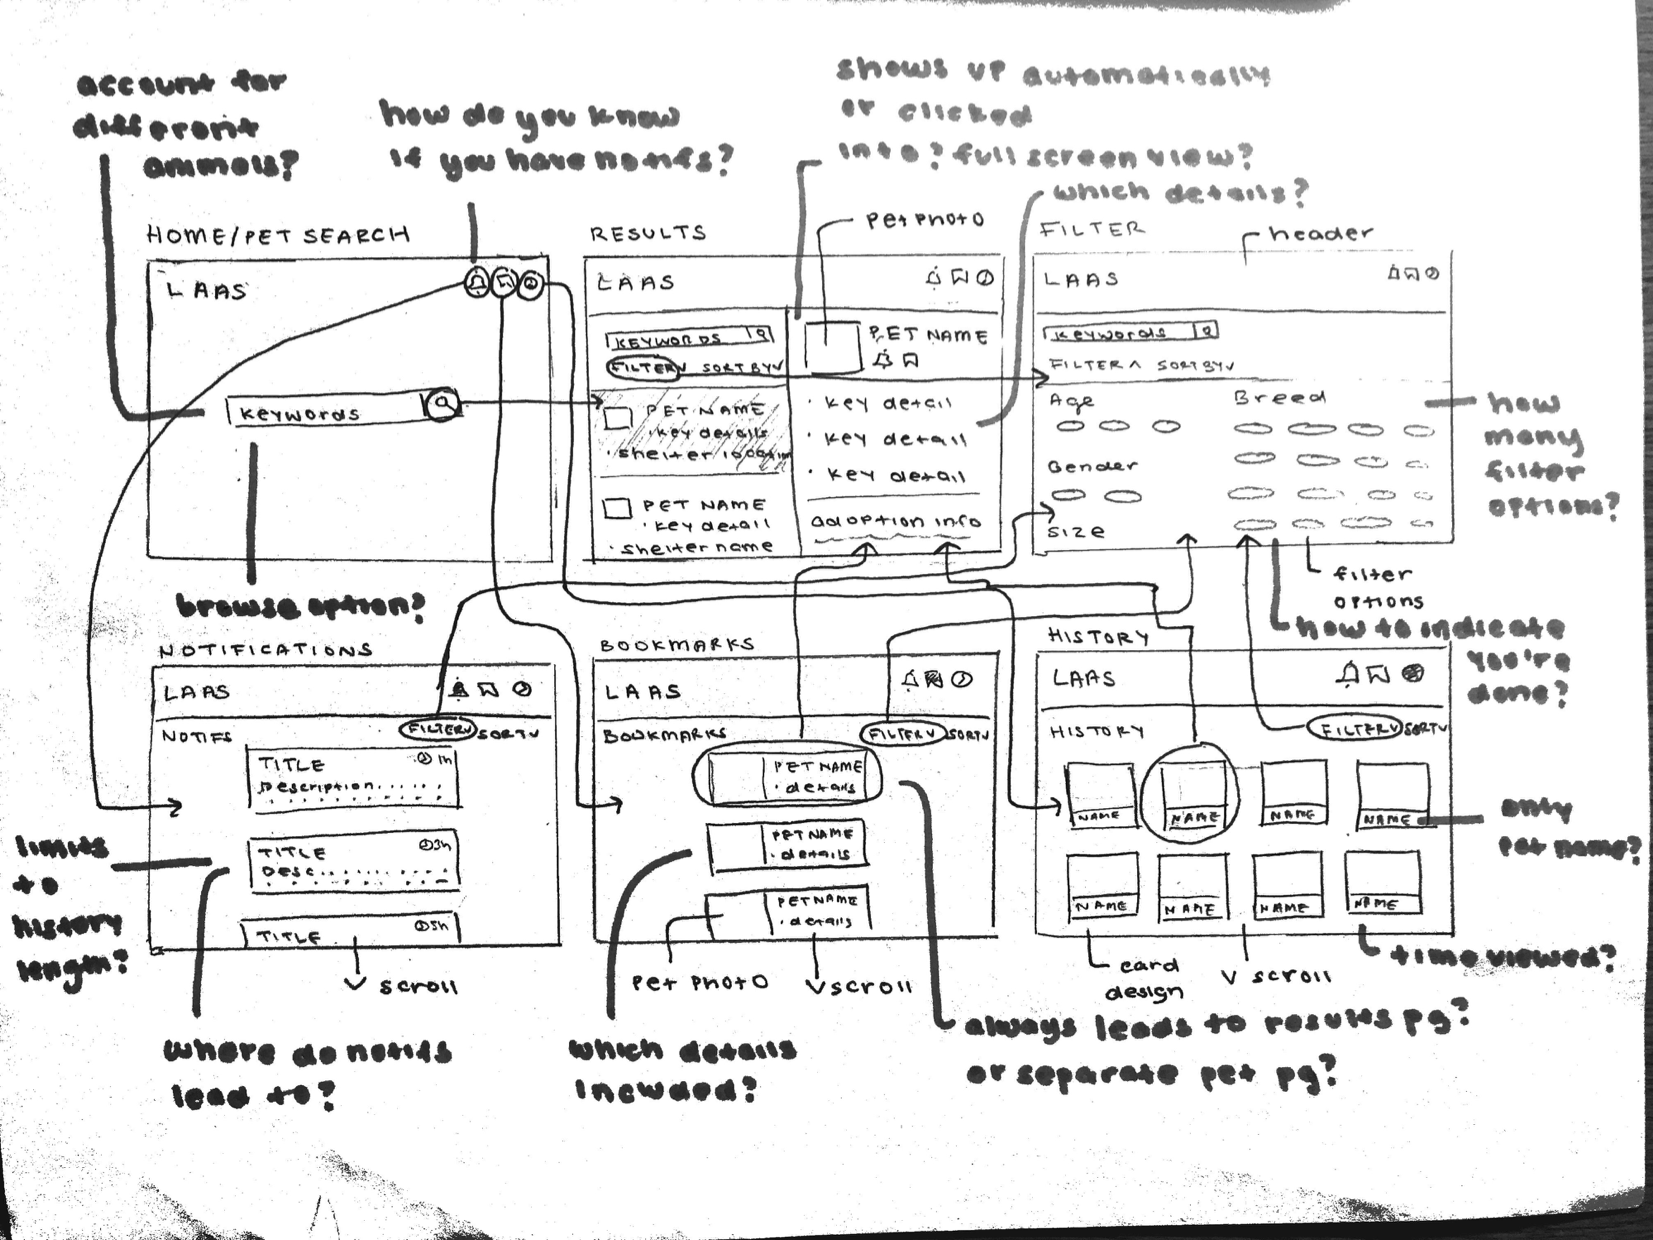 account for
different
animals?
how do you know
if you have notifs?
shows up automatically
or clicked
into? full screen view?
which details?
HOME/PET SEARCH
LAAS
keywords
browse option?
RESULTS
pet photo
LAAS
KEYWORDS
FILTER SORT BY
PET NAME
key details
shelter location
PET NAME
key detail
shelter name
PET NAME
key detail
key detail
key detail
adoption info
FILTER
header
LAAS
keywords
FILTER SORT BY
Age
Breed
Gender
Size
how
many
filter
options?
filter
options
how to indicate
you're
done?
NOTIFICATIONS
LAAS
FILTER SORT
NOTIFS
TITLE 1h
Description
TITLE 3h
Desc
TITLE 5h
scroll
limits
to
history
length?
where do notifs
lead to?
BOOKMARKS
LAAS
BOOKMARKS FILTER SORT
PET NAME
details
PET NAME
details
PET NAME
details
pet photo
scroll
which details
included?
always leads to results pg?
or separate pet pg?
HISTORY
LAAS
HISTORY FILTER SORT
NAME NAME NAME NAME
NAME NAME NAME NAME
only
pet name?
time viewed?
card
design
scroll